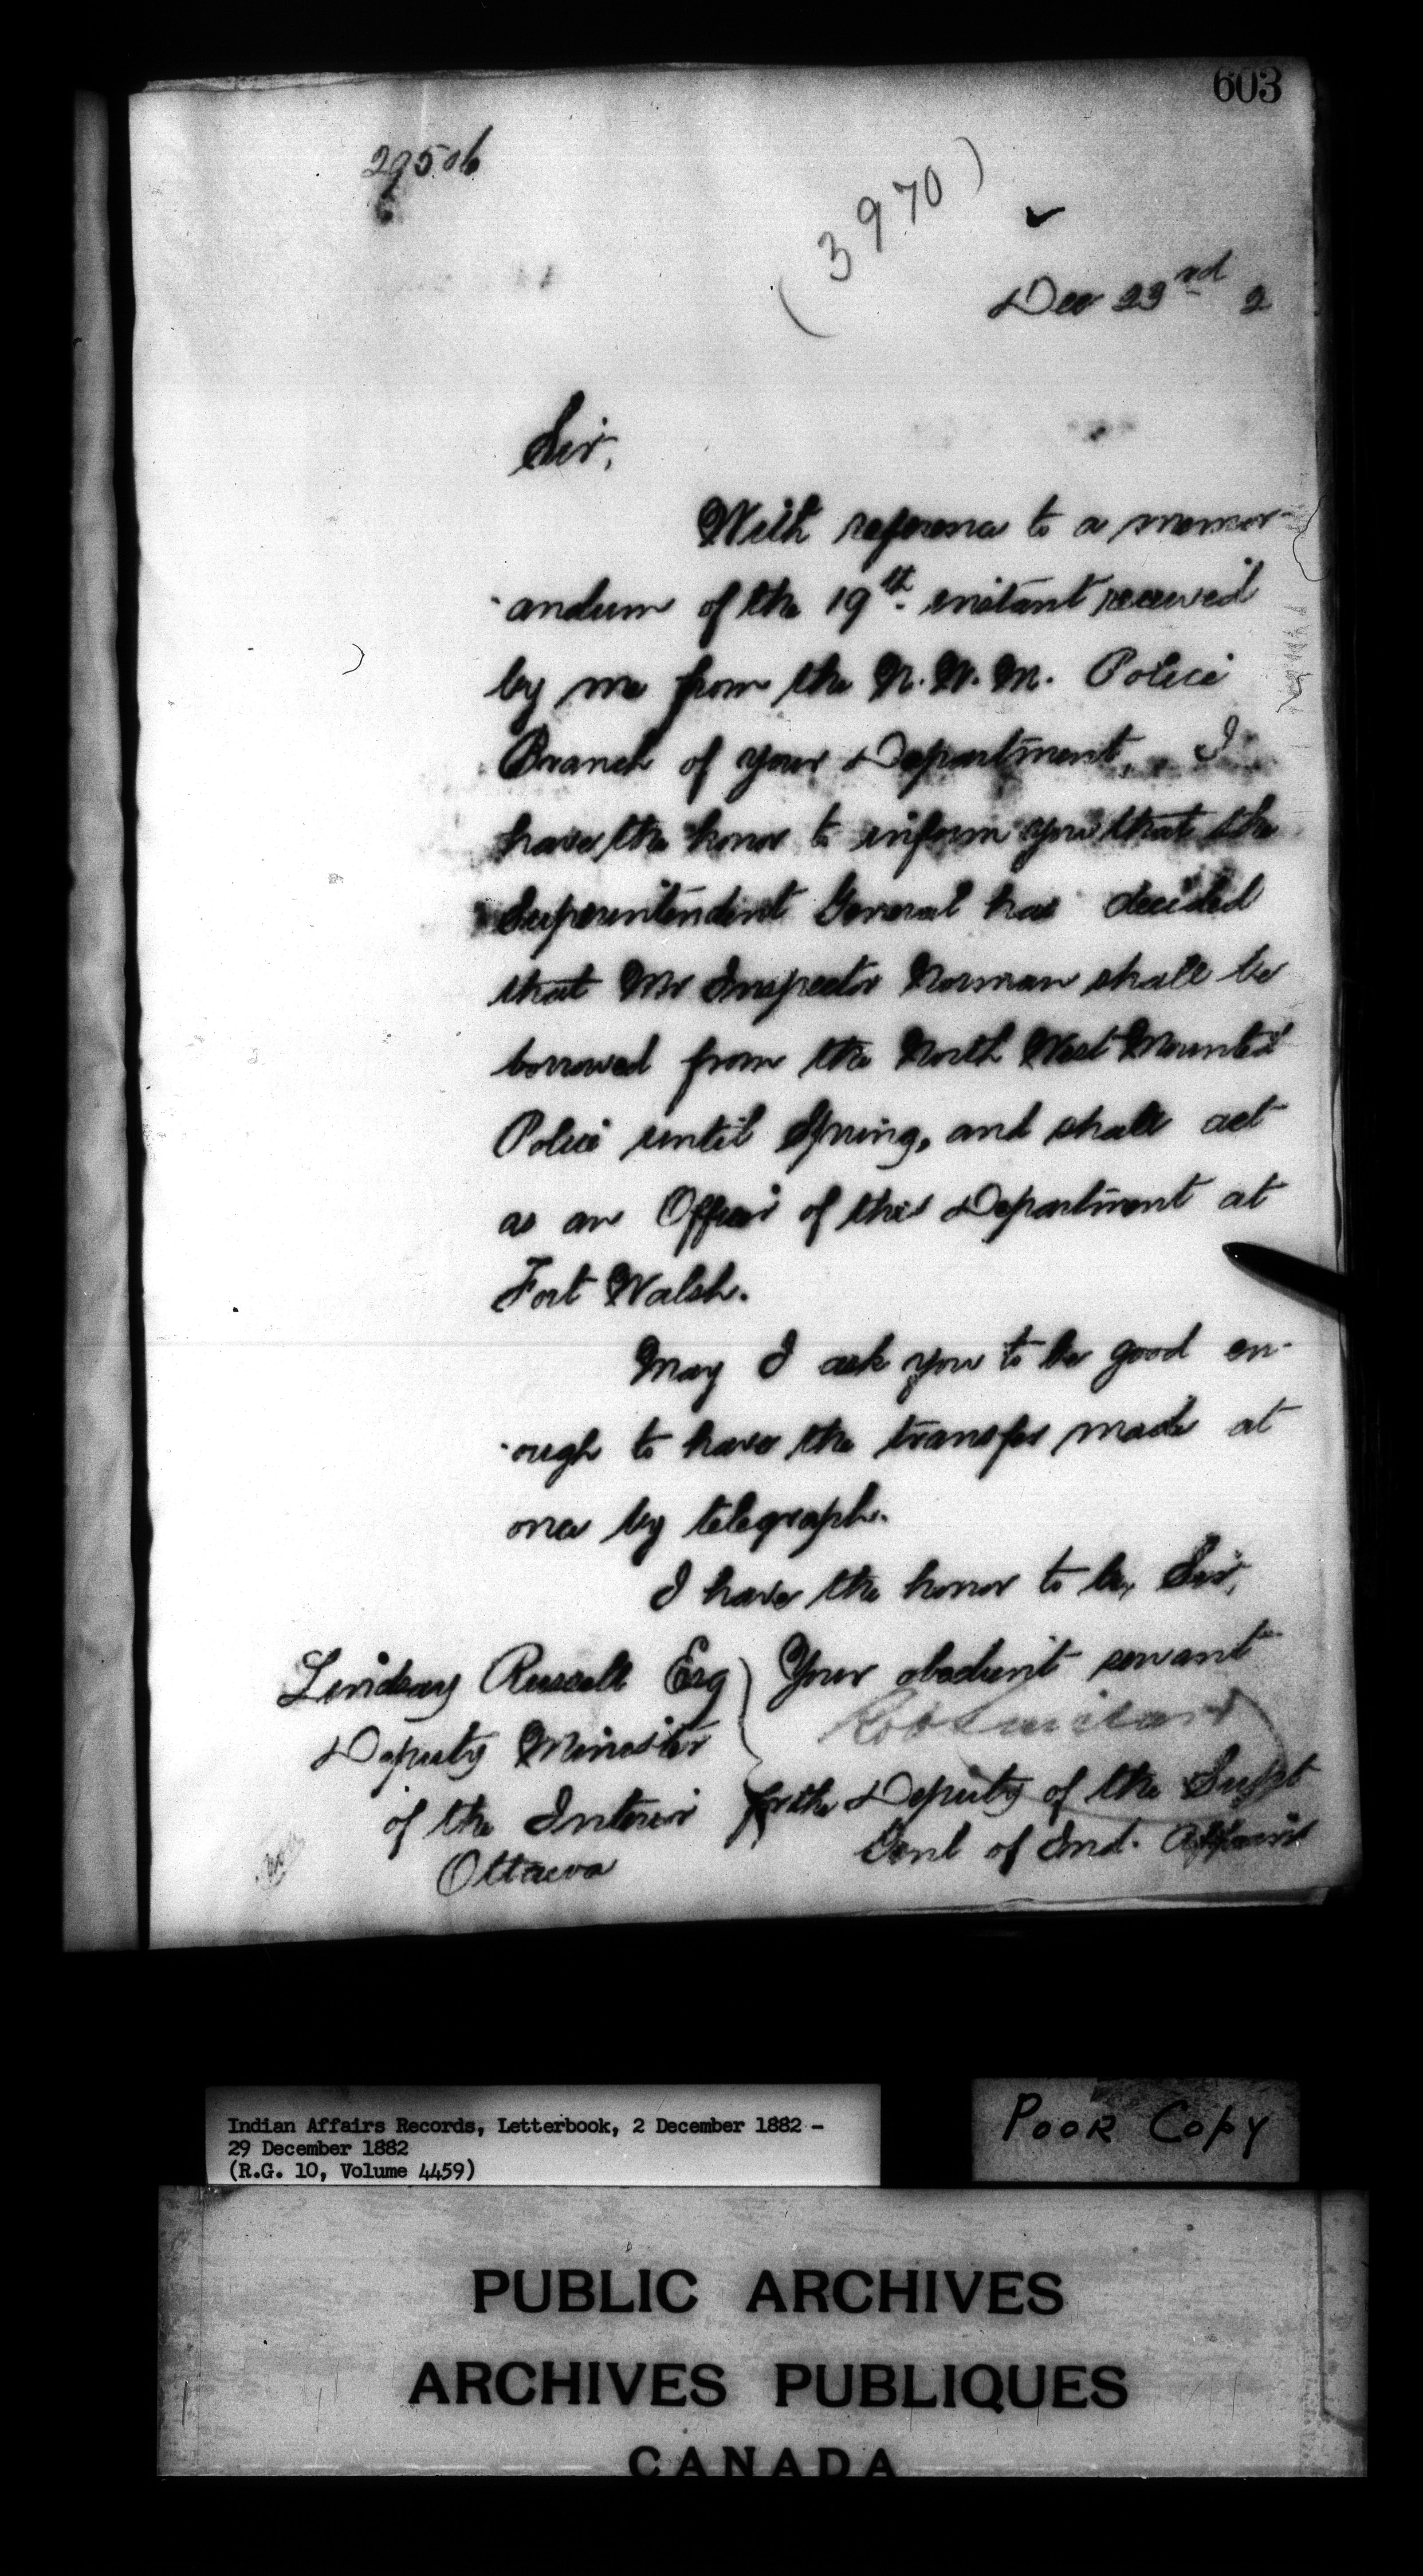 603
29506
(3970)
Dec 23rd 2
Sir,
With reference to a memor-
-andum of the 19th. instant received
by me from the N. W. M. Police
Branch of your Department, I
have the honor to inform you that the
Superintendent General has decided
that Mr Inspector Norman shall be
borrowed from the North West Mounted
Police until Spring, and shall act
as an Officer of this Department at
Fort Walsh.
May I ask you to be good en-
-ough to have the transfer made at
once by telegraph.
I have the honor to be, Sir,
Your obedient servant
for the Deputy of the Supt
Genl of Ind. Affairs
Lindsay Russell Esq
Deputy Minister
of the Interior
Ottawa
Indian Affairs Records, Letterbook, 2 December 1882 -
29 December 1882
(R.G. 10, Volume 4459)
POOR COPY
PUBLIC ARCHIVES
ARCHIVES PUBLIQUES
CANADA